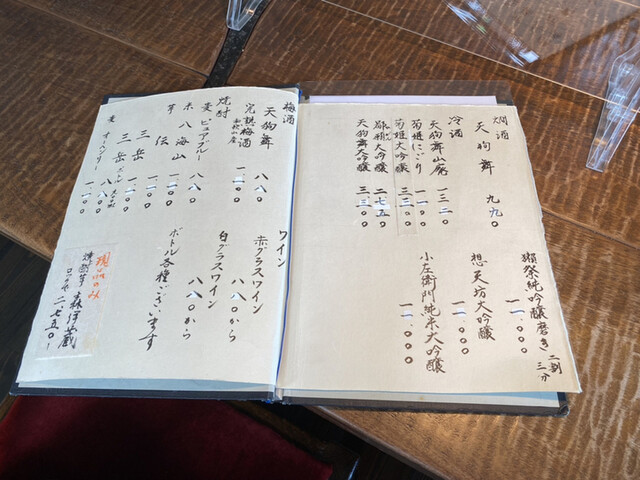 燗酒
天狗舞 九九〇
冷酒
天狗舞山廃 一三二〇
菊姫にごり 一一〇〇
菊姫大吟醸 三三〇〇
大吟醸 二七五〇
天狗舞大吟醸 三三〇〇
獺祭純吟醸磨き二割三分
一一、〇〇〇
想天坊大吟醸
一一、〇〇〇
小左衛門純米大吟醸
一一、〇〇〇
梅酒
天狗舞 八八〇
完熟梅酒 一一〇〇
焼酎
麦 ピュアブルー 八八〇
米 八海山 八八〇
芋 伝 一一〇〇
三岳 一一〇〇
三岳
麦
ワイン
赤グラスワイン
八八〇から
白グラスワイン
八八〇から
ボトル各種ございます
現品のみ
焼酎芋 森伊蔵
ロック 二、七五〇